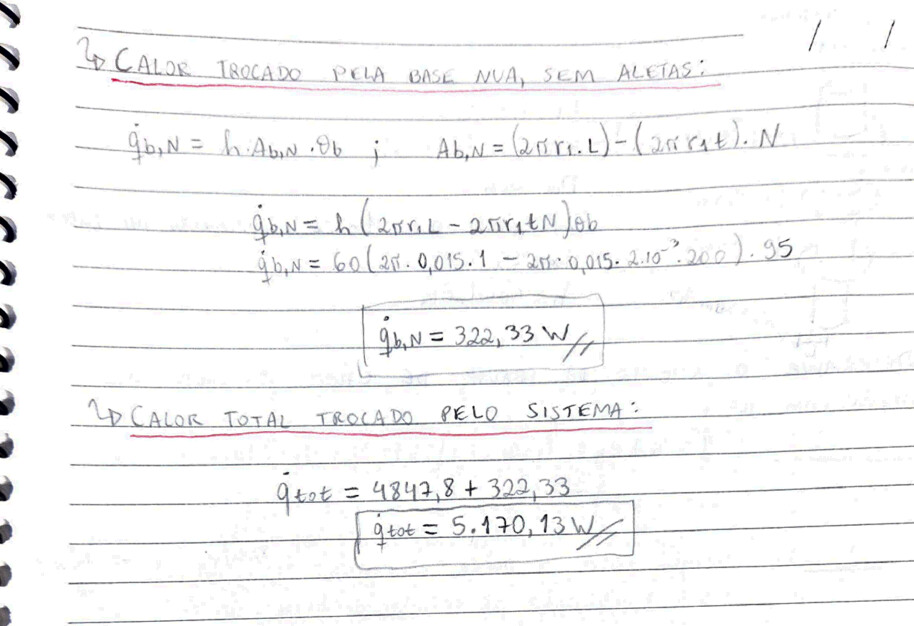 ↳ CALOR TROCADO PELA BASE NUA, SEM ALETAS:
q̇b,N = h.Ab,N.θb ; Ab,N = (2πr₁.L) - (2πr₁t).N
q̇b,N = h(2πr₁L - 2πr₁tN)θb
q̇b,N = 60(2π.0,015.1 - 2π.0,015.2.10⁻³.200).95
q̇b,N = 322,33 W//
↳ CALOR TOTAL TROCADO PELO SISTEMA:
q̇tot = 4847,8 + 322,33
q̇tot = 5.170,13 W//